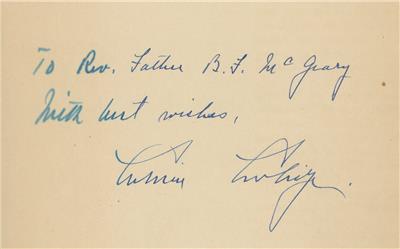 To Rev. Father B. F. Mc Geary
With best wishes,
Calvin Coolidge.